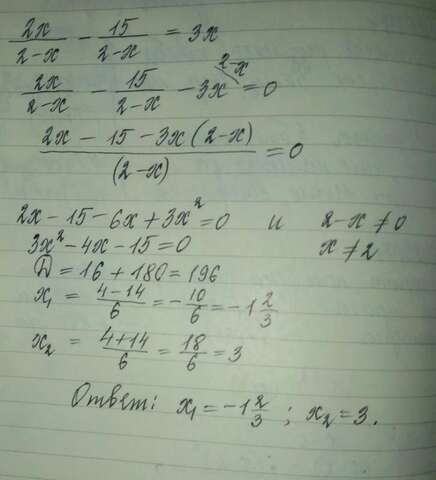 2x/(2-x) - 15/(2-x) = 3x
2x/(2-x) - 15/(2-x) - 3x^(2-x) = 0
(2x - 15 - 3x(2-x))/(2-x) = 0
2x - 15 - 6x + 3x² = 0 и 2-x ≠ 0
3x² - 4x - 15 = 0 x ≠ 2
D = 16 + 180 = 196
x₁ = (4-14)/6 = -10/6 = -1 2/3
x₂ = (4+14)/6 = 18/6 = 3
Ответ: x₁ = -1 2/3 ; x₂ = 3.